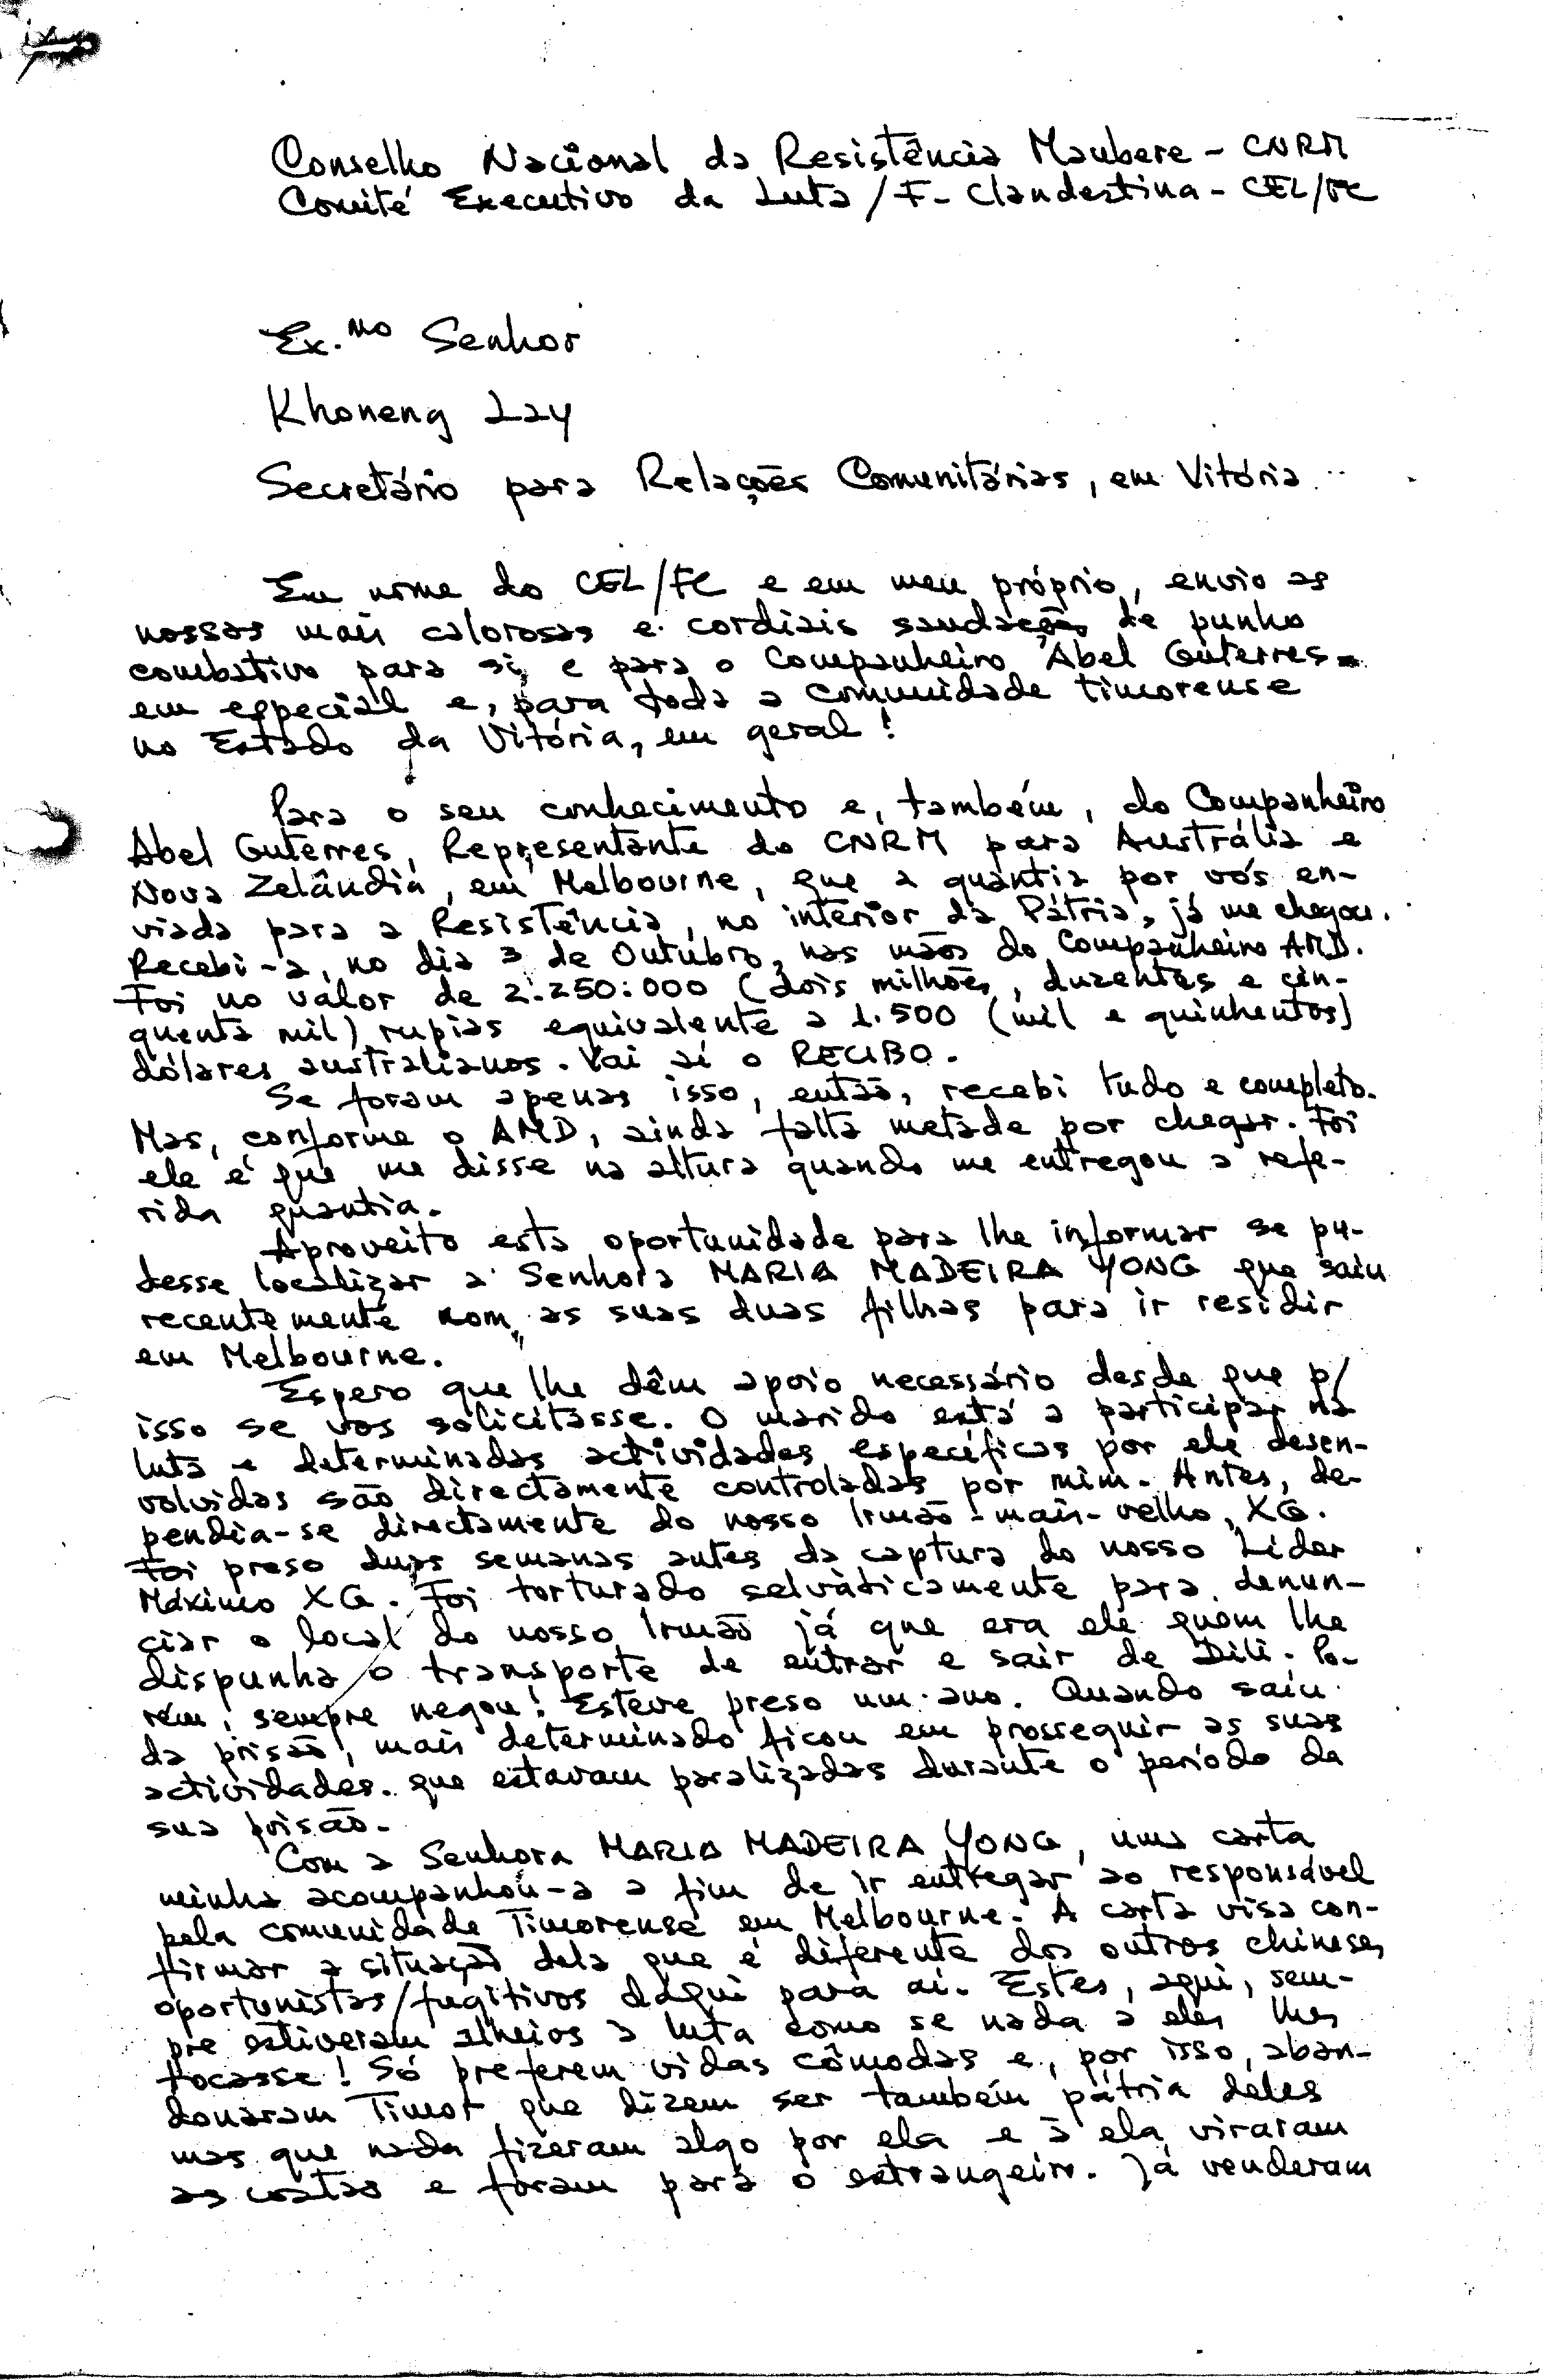 Conselho Nacional da Resistência Maubere - CNRM
Comité Executivo da Luta / F- Clandestina - CEL/FC
Ex.mo Senhor
Khoneng Lay
Secretário para Relações Comunitárias, em Vitória
Em nome do CEL/FC e em meu próprio, envio as
nossas mais calorosas e cordiais saudações de punho
combativo para si, e para o Companheiro Abel Guterres
em especial e, para toda a comunidade timorense
no Estado da Vitória, em geral!
Para o seu conhecimento e, também, do Companheiro
Abel Guterres, Representante do CNRM para Austrália e
Nova Zelândia, em Melbourne, que a quantia por vós en-
viada para a Resistência, no interior da Pátria, já me chegou.
Recebi-a, no dia 3 de Outubro, nas mãos do Companheiro AMD.
Foi no valor de 2.250.000 (dois milhões, duzentas e cin-
quenta mil) rupias equivalente a 1.500 (mil e quinhentos)
dólares australianos. Vai aí o RECIBO.
Se foram apenas isso, então, recebi tudo e completo.
Mas, conforme o AMD, ainda falta metade por chegar. Foi
ele é que me disse na altura quando me entregou a refe-
rida quantia.
Aproveito esta oportunidade para lhe informar se pu-
desse localizar a Senhora MARIA MADEIRA YONG que saiu
recentemente com as suas duas filhas para ir residir
em Melbourne.
Espero que lhe dêm apoio necessário desde que p/
isso se vos solicitasse. O marido está a participar na
luta e determinadas actividades específicas por ele desen-
volvidas são directamente controladas por mim. Antes, de-
pendia-se directamente do nosso Irmão-mais-velho, XG.
Foi preso duas semanas antes da captura do nosso Líder
Máximo XG. Foi torturado selvàticamente para denun-
ciar o local do nosso Irmão já que era ele quem lhe
dispunha o transporte de entrar e sair de Dili. Po-
rém, sempre negou! Esteve preso um ano. Quando saiu
da prisão, mais determinado ficou em prosseguir as suas
actividades. que estavam paralizadas durante o período da
sua prisão.
Com a Senhora MARIA MADEIRA YONG, uma carta
minha acompanhou-a a fim de ir entregar ao responsável
pela comunidade Timorense em Melbourne. A carta visa con-
firmar a situação dela que é diferente dos outros chineses
oportunistas/fugitivos daqui para aí. Estes, aqui, sem-
pre estiveram alheios à luta como se nada a eles lhes
tocasse! Só preferem vidas cômodas e, por isso, aban-
donaram Timor que dizem ser também pátria deles
mas que nada fizeram algo por ela e à ela viraram
as costas e foram para o estrangeiro. Já venderam